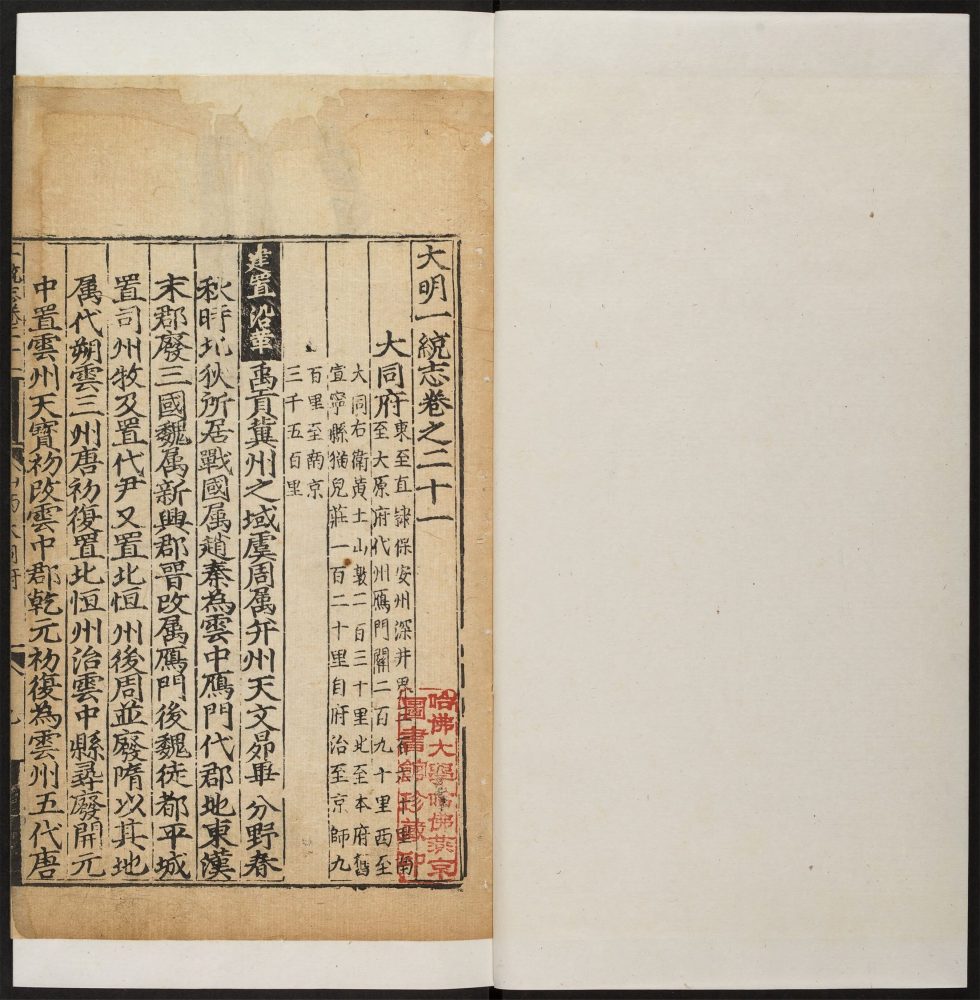 大明一統志卷之二十一
大同府
東至直隸保安州深井界
至大原府代州鴈門關二百九十里西至
大同右衛黄土山墩二百三十里北至本府舊
宣寧縣猫兒莊一百二十里自府治至京師九
百里至南京
三千五百里
建置沿革 禹貢冀州之域虞周属并州天文昴畢分野春
秋時北狄所居戰國属趙秦為雲中鴈門代郡地東漢
末郡廢三國魏属新興郡晉改属鴈門後魏徙都平城
置司州牧及置代尹又置北恒州後周並廢隋以其地
属代朔雲三州唐初復置北恒州治雲中縣尋廢開元
中置雲州天寳初改雲中郡乾元初復為雲州五代唐
哈佛大學哈佛燕京
圖書館珍藏印